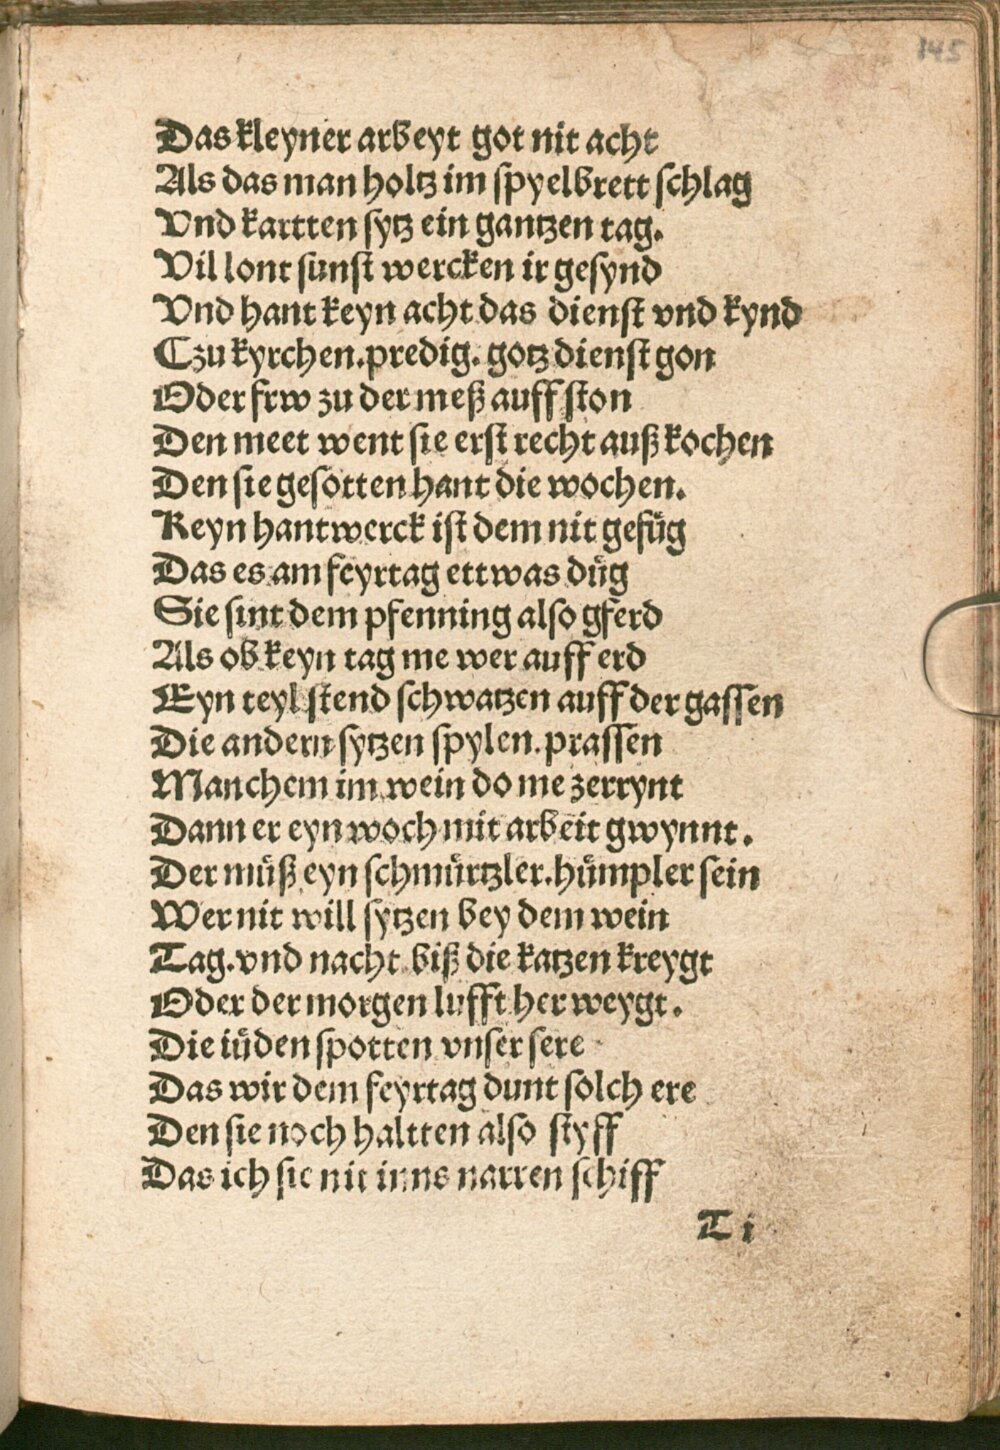 145
Das kleyner arbeyt got nit acht
Als das man holtz im spyelbrett schlag
Vnd kartten sytz ein gantzen tag.
Vil lont sunst wercken ir gesynd
Vnd hant keyn acht das dienst vnd kynd
Czu kyrchen.predig. gotz dienst gon
Oder frw zu der meß auff ston
Den meet went sie erst recht auß kochen
Den sie gesotten hant die wochen.
Keyn hantwerck ist dem nit gefuͤg
Das es am feyrtag ettwas duͤg
Sie sint dem pfenning also gferd
Als ob keyn tag me wer auff erd
Eyn teyl stend schwatzen auff der gassen
Die andern sytzen spylen.prassen
Manchem im wein do me zerrynt
Dann er eyn woch mit arbeit gwynnt.
Der muͤß eyn schmuͤrtzler.huͤmpler sein
Wer nit will sytzen bey dem wein
Tag.vnd nacht biß die katzen kreygt
Oder der morgen lufft her weygt.
Die iuͤden spotten vnser sere
Das wir dem feyrtag dunt solch ere
Den sie noch haltten also styff
Das ich sie nit inns narren schiff
T i